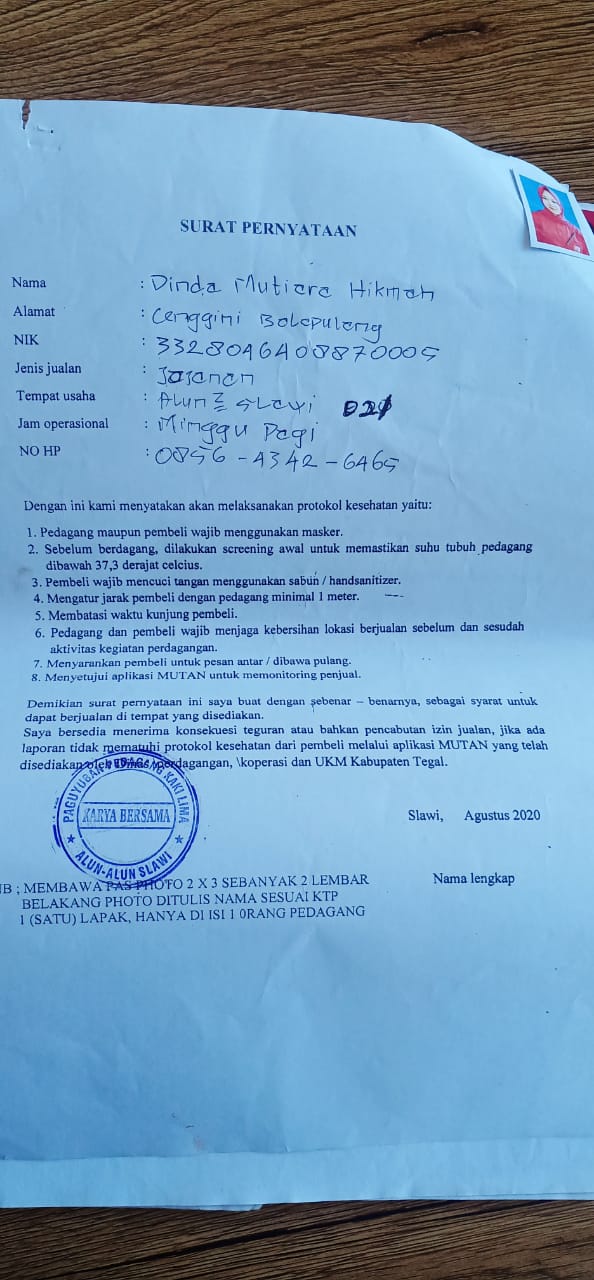 SURAT PERNYATAAN
Nama : Dinda Mutiara Hikmah
Alamat : Cenggini Balapulang
NIK : 3328046408870005
Jenis jualan : Jajanan
Tempat usaha : Alun2 Slawi D21
Jam operasional : Minggu Pagi
NO HP : 0856-4342-6465
Dengan ini kami menyatakan akan melaksanakan protokol kesehatan yaitu:
1. Pedagang maupun pembeli wajib menggunakan masker.
2. Sebelum berdagang, dilakukan screening awal untuk memastikan suhu tubuh pedagang
dibawah 37,3 derajat celcius.
3. Pembeli wajib mencuci tangan menggunakan sabun / handsanitizer.
4. Mengatur jarak pembeli dengan pedagang minimal 1 meter.
5. Membatasi waktu kunjung pembeli.
6. Pedagang dan pembeli wajib menjaga kebersihan lokasi berjualan sebelum dan sesudah
aktivitas kegiatan perdagangan.
7. Menyarankan pembeli untuk pesan antar / dibawa pulang.
8. Menyetujui aplikasi MUTAN untuk memonitoring penjual.
Demikian surat pernyataan ini saya buat dengan sebenar – benarnya, sebagai syarat untuk
dapat berjualan di tempat yang disediakan.
Saya bersedia menerima konsekuesi teguran atau bahkan pencabutan izin jualan, jika ada
laporan tidak mematuhi protokol kesehatan dari pembeli melalui aplikasi MUTAN yang telah
disediakan oleh Dinas perdagangan, \koperasi dan UKM Kabupaten Tegal.
PAGUYUBAN PEDAGANG KAKI LIMA
KARYA BERSAMA
ALUN-ALUN SLAWI
Slawi, Agustus 2020
Nama lengkap
NB ; MEMBAWA PAS PHOTO 2 X 3 SEBANYAK 2 LEMBAR
BELAKANG PHOTO DITULIS NAMA SESUAI KTP
1 (SATU) LAPAK, HANYA DI ISI 1 0RANG PEDAGANG